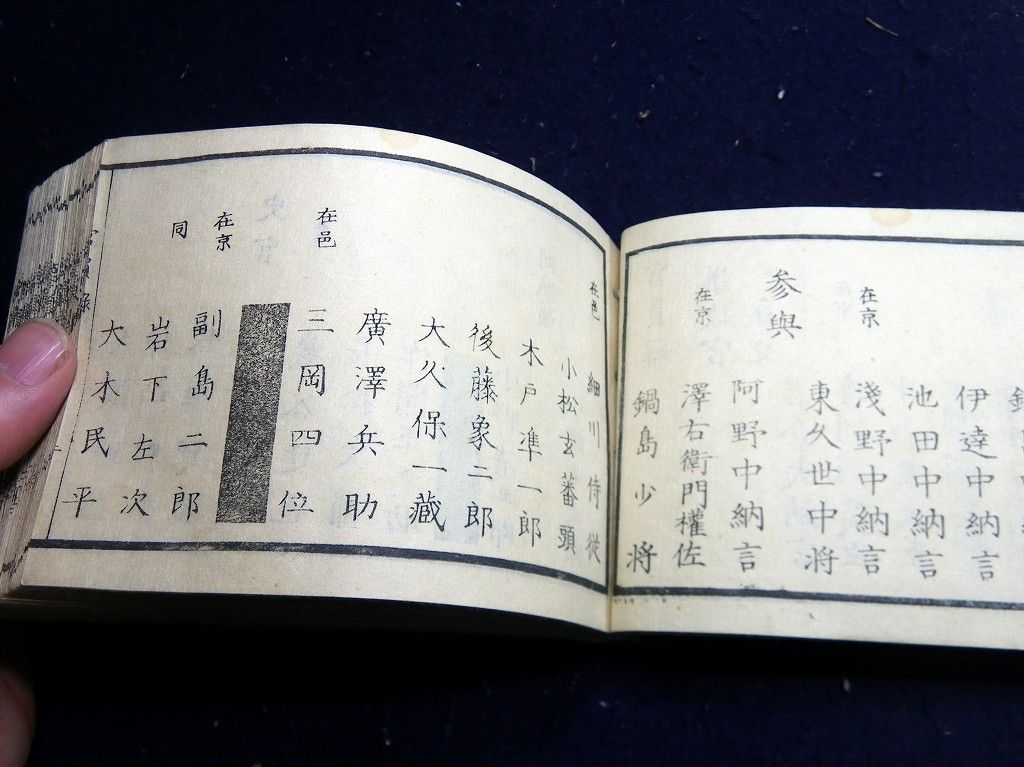 伊達中納言
池田中納言
淺野中納言
在京
東久世中将
参與
阿野中納言
在京
澤右衛門權佐
鍋島少将
在邑
細川侍従
小松玄蕃頭
木戸凖一郎
後藤象二郎
大久保一藏
廣澤兵助
在邑
三岡四位
在京
副島二郎
同
岩下左次
大木民平